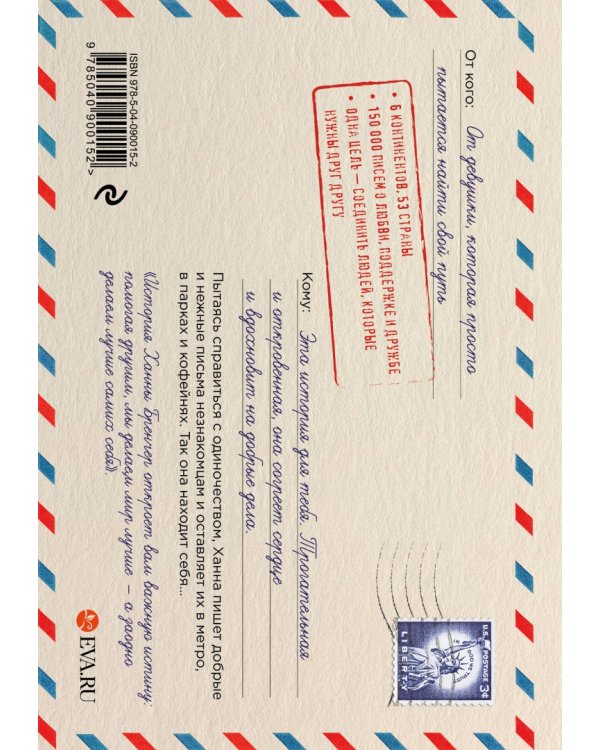 От кого: От девушки, которая просто
пытается найти свой путь
• 6 КОНТИНЕНТОВ, 53 СТРАНЫ
• 150 000 ПИСЕМ О ЛЮБВИ, ПОДДЕРЖКЕ И ДРУЖБЕ
• ОДНА ЦЕЛЬ — СОЕДИНИТЬ ЛЮДЕЙ, КОТОРЫЕ
НУЖНЫ ДРУГ ДРУГУ
U.S. POSTAGE
3¢
IN GOD WE TRUST
LIBERTY
Кому: Эта история для тебя. Трогательная
и откровенная, она согреет сердце
и вдохновит на добрые дела.
Пытаясь справиться с одиночеством, Ханна пишет добрые
и нежные письма незнакомцам и оставляет их в метро,
в парках и кофейнях. Так она находит себя...
«История Ханны Бренчер откроет вам важную истину:
помогая другим, мы делаем мир лучше – а заодно
делаем лучше самих себя».
EVA.RU
ISBN 978-5-04-090015-2
9 785040 900152 >